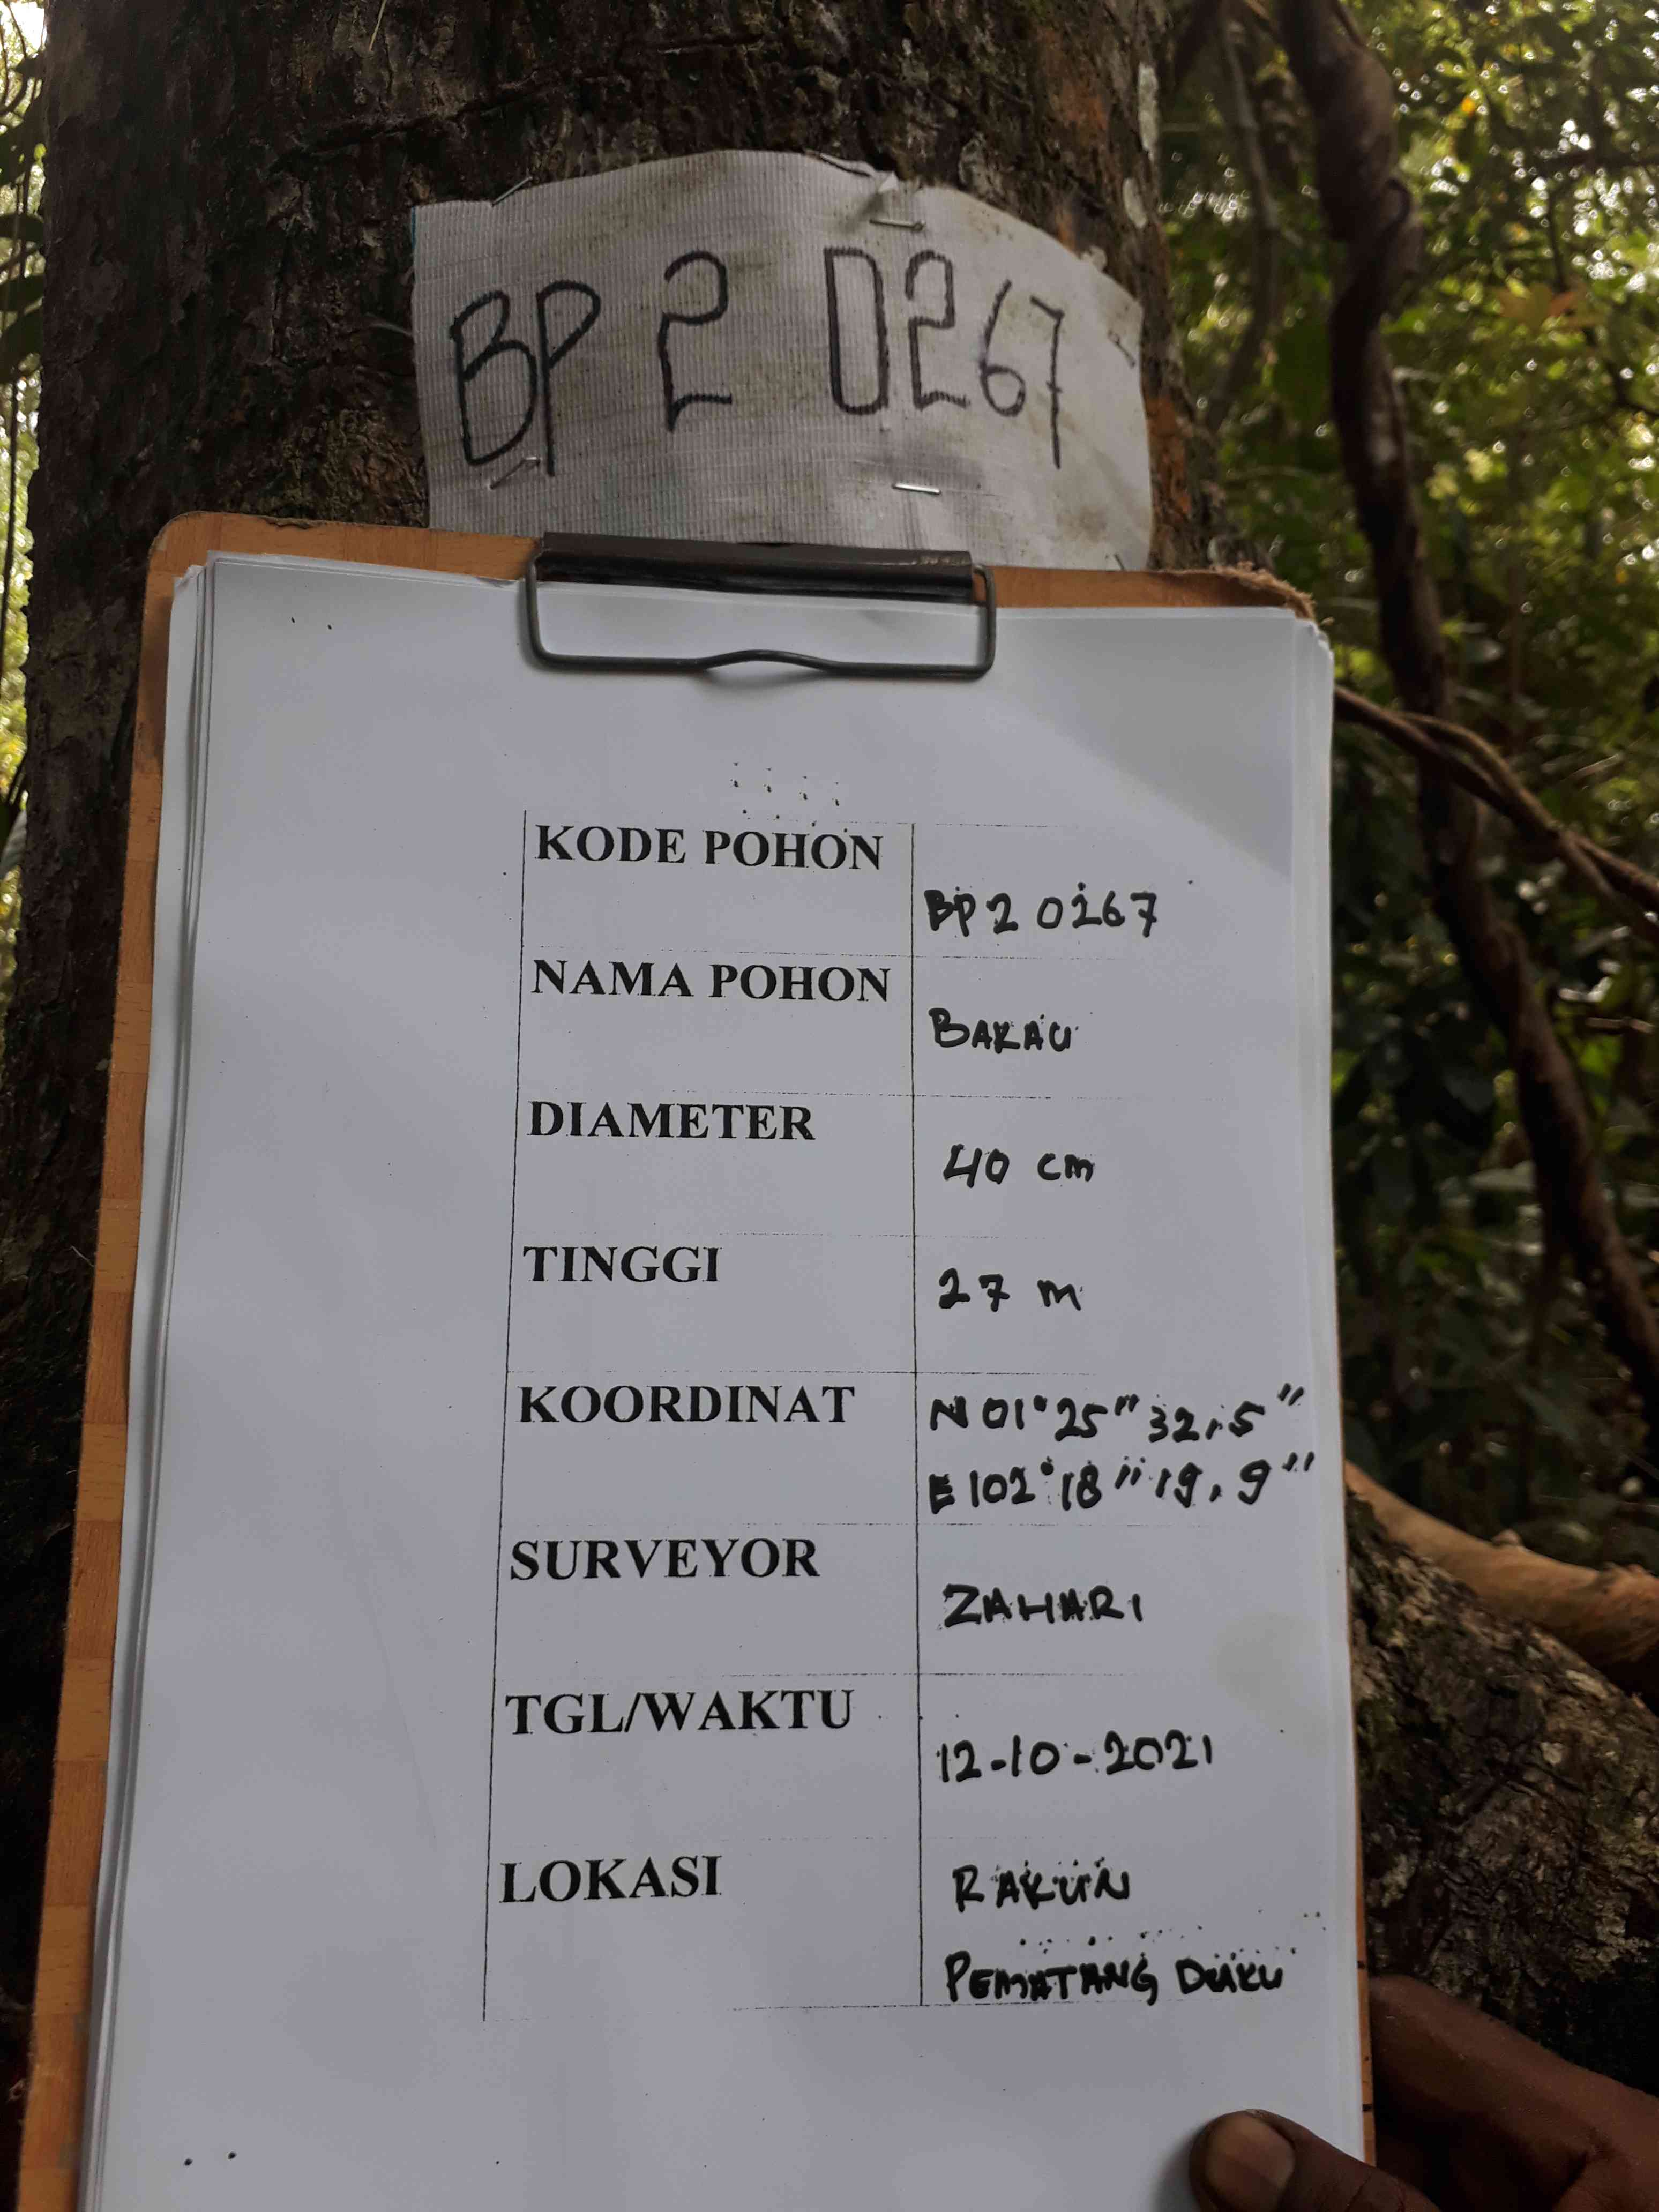 BP 2 0267
KODE POHON
BP 2 0267
NAMA POHON
BAKAU
DIAMETER
40 cm
TINGGI
27 m
KOORDINAT
N 01° 25" 32,5"
E 102° 18" 19,9"
SURVEYOR
ZAHARI
TGL/WAKTU
12-10-2021
LOKASI
RAKUN
PEMATANG DUKU